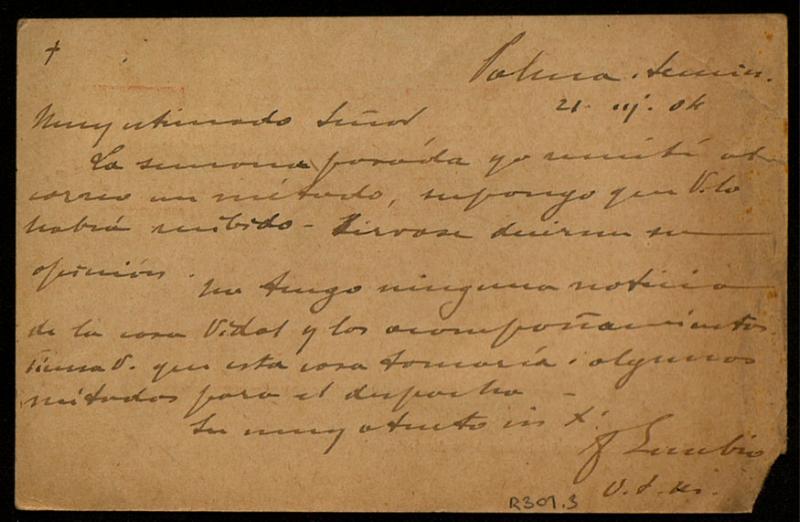 +
Palma. Semin.
21. iij. 04
Muy estimado Señor
La semana pasada yo remití al
correo un método, supongo que V. lo
habrá recibido - Sírvase decirme su
opinión.
No tengo ninguna noticia
de la casa Vidal y los acompañamientos.
Piensa V. que esta casa tomaría algunos
métodos para el despacho -
Su muy atento in X.
f Eusebio
R301.3